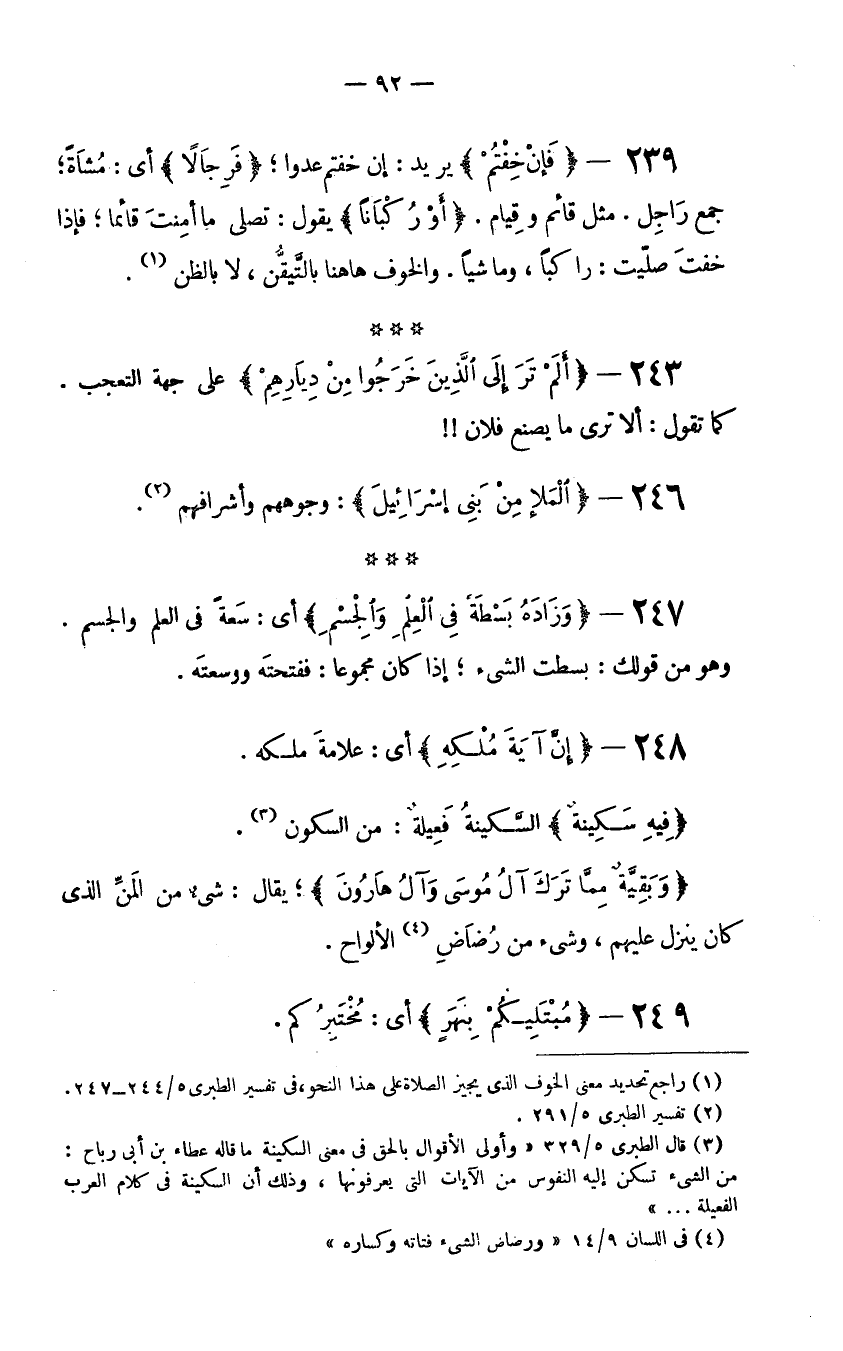 — ٩٢ —
٢٣٩ — ﴿ فَإِنْ خِفْتُمْ ﴾ يريد : إن خفتم عدوا ؛ ﴿ فَرِجَالًا ﴾ أى : مُشاَةً ؛
جمع رَاجِل . مثل قائم وقِيام . ﴿ أَوْ رُكْبَاناً ﴾ يقول : تصلى ما أمِنتَ قائما ؛ فإذا
خفتَ صلّيت : راكباً ، وماشياً . والخوف هاهنا بالتَّيقُّن ، لا بالظن (١) .
* * *
٢٤٣ — ﴿ أَلَمْ تَرَ إِلَى ٱلَّذِينَ خَرَجُوا مِنْ دِيَارِهِمْ ﴾ على جهة التعجب .
كما تقول : ألا ترى ما يصنع فلان !!
٢٤٦ — ﴿ ٱلْمَلَإِ مِنْ بَنِى إِسْرَائِيلَ ﴾ : وجوههم وأشرافهم (٢) .
* * *
٢٤٧ — ﴿ وَزَادَهُ بَسْطَةً فِى ٱلْعِلْمِ وَٱلْجِسْمِ ﴾ أى : سَعةً فى العلم والجسم .
وهو من قولك : بسطت الشىء ؛ إذا كان مجموعا : ففتحتَه ووسعتَه .
٢٤٨ — ﴿ إِنَّ آيَةَ مُلْكِهِ ﴾ أى : علامةَ ملكه .
﴿ فِيهِ سَكِينةٌ ﴾ السَّكينةُ فَعِيلةٌ : من السكون (٣) .
﴿ وَبَقِيَّةٌ مِمَّا تَرَكَ آلُ مُوسَى وَآلُ هَارُونَ ﴾ ؛ يقال : شىءٌ من المَنِّ الذى
كان ينزل عليهم ، وشىء من رُضاَضِ (٤) الألواح .
٢٤٩ — ﴿ مُبْتَلِيكُمْ بِنَهَرٍ ﴾ أى : مُخْتَبِرُكم .
(١) راجع تحديد معنى الخوف الذى يجيز الصلاة على هذا النحو، فى تفسير الطبرى ٥/٢٤٤ــ٢٤٧.
(٢) تفسير الطبرى ٥/٢٩١ .
(٣) قال الطبرى ٥/٣٢٩ « وأولى الأقوال بالحق فى معنى السكينة ما قاله عطاء بن أبى رباح :
من الشىء تسكن إليه النفوس من الآيات التى يعرفونها ، وذلك أن السكينة فى كلام العرب
الفعيلة ... »
(٤) فى اللسان ٩/١٤ « ورضاض الشىء فتاته وكساره »